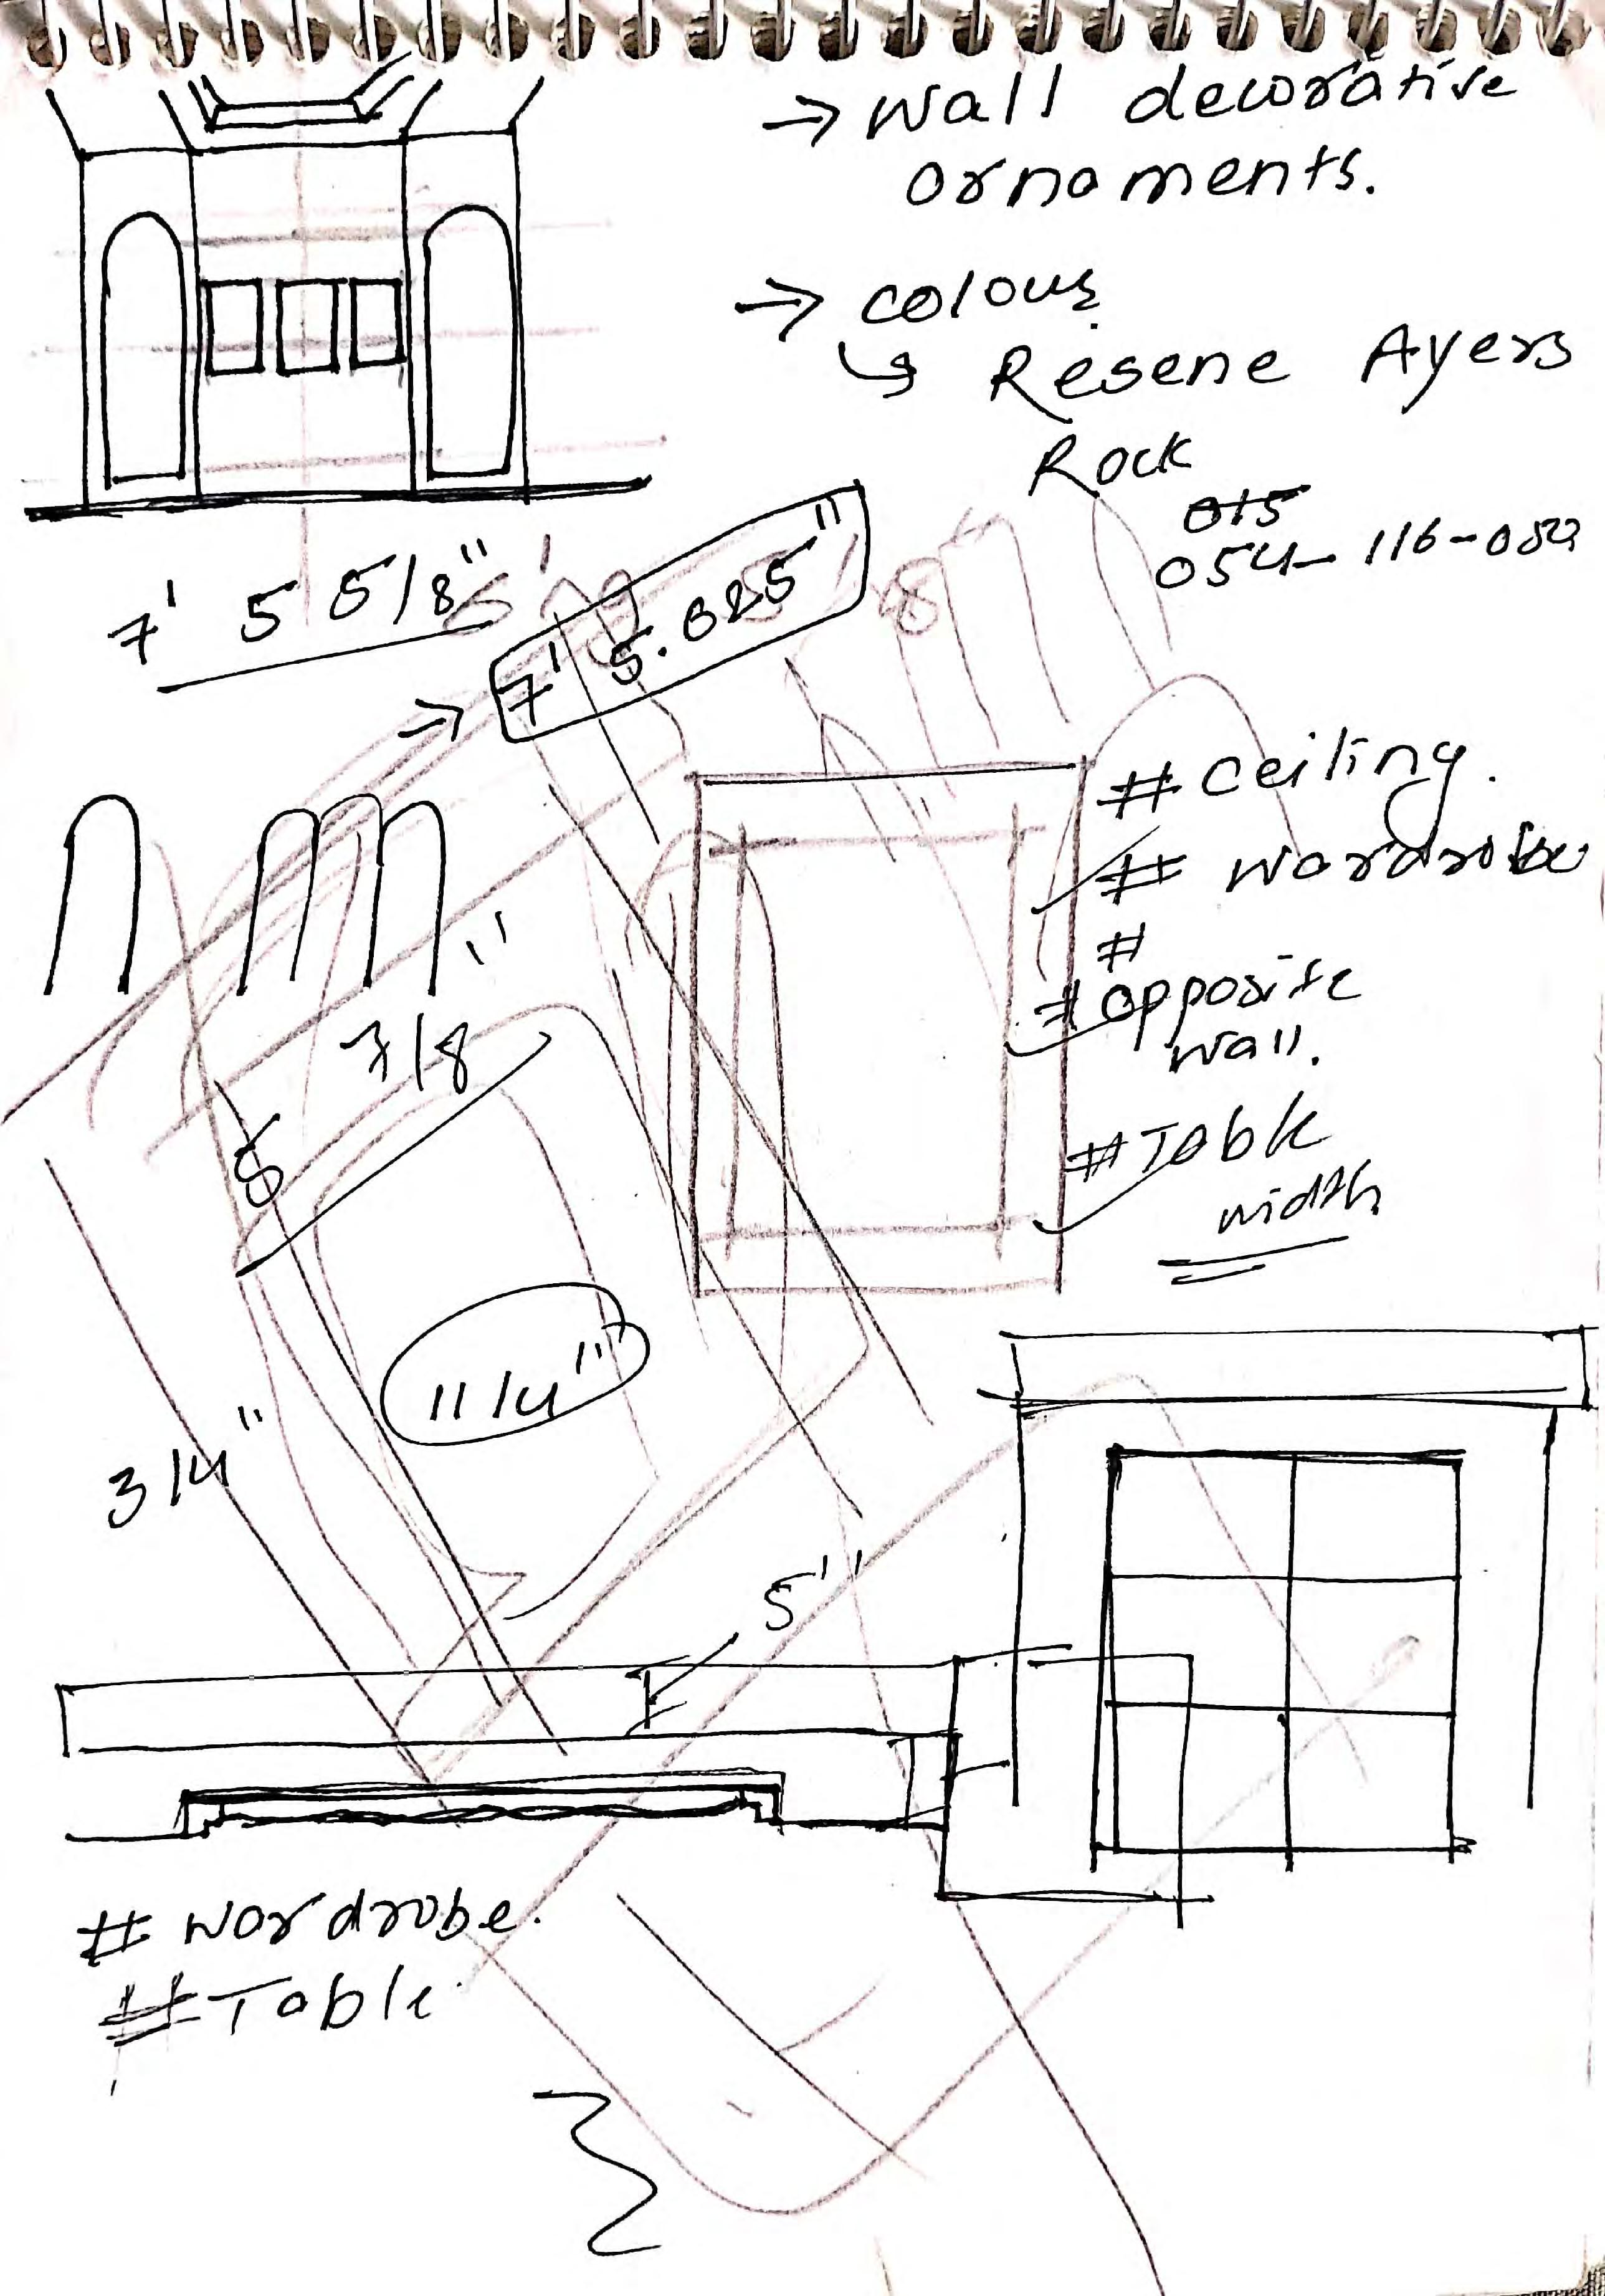 → Wall decorative
ornaments.
→ colour
↳ Resene Ayers
Rock
015
054-116-059
7' 5 5/8"
→ 7' 5.625"
# ceiling.
# wardrobe
#
# opposite
wall.
# Table
width
7/8"
5
11/4"
3/4"
5''
# wardrobe.
# Table